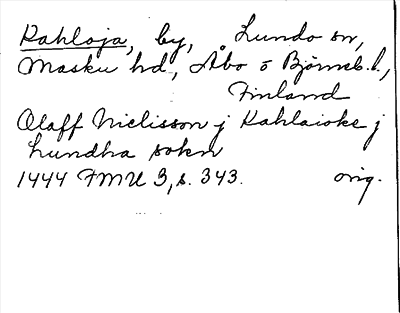 Kahloja, by, Lundo sn,
Masku hd., Åbo o Björneb. l.,
Finland
Olaff Niclisson j Kahlaioke j
Lundha sokn
1444 FMU 3, s. 343. orig.